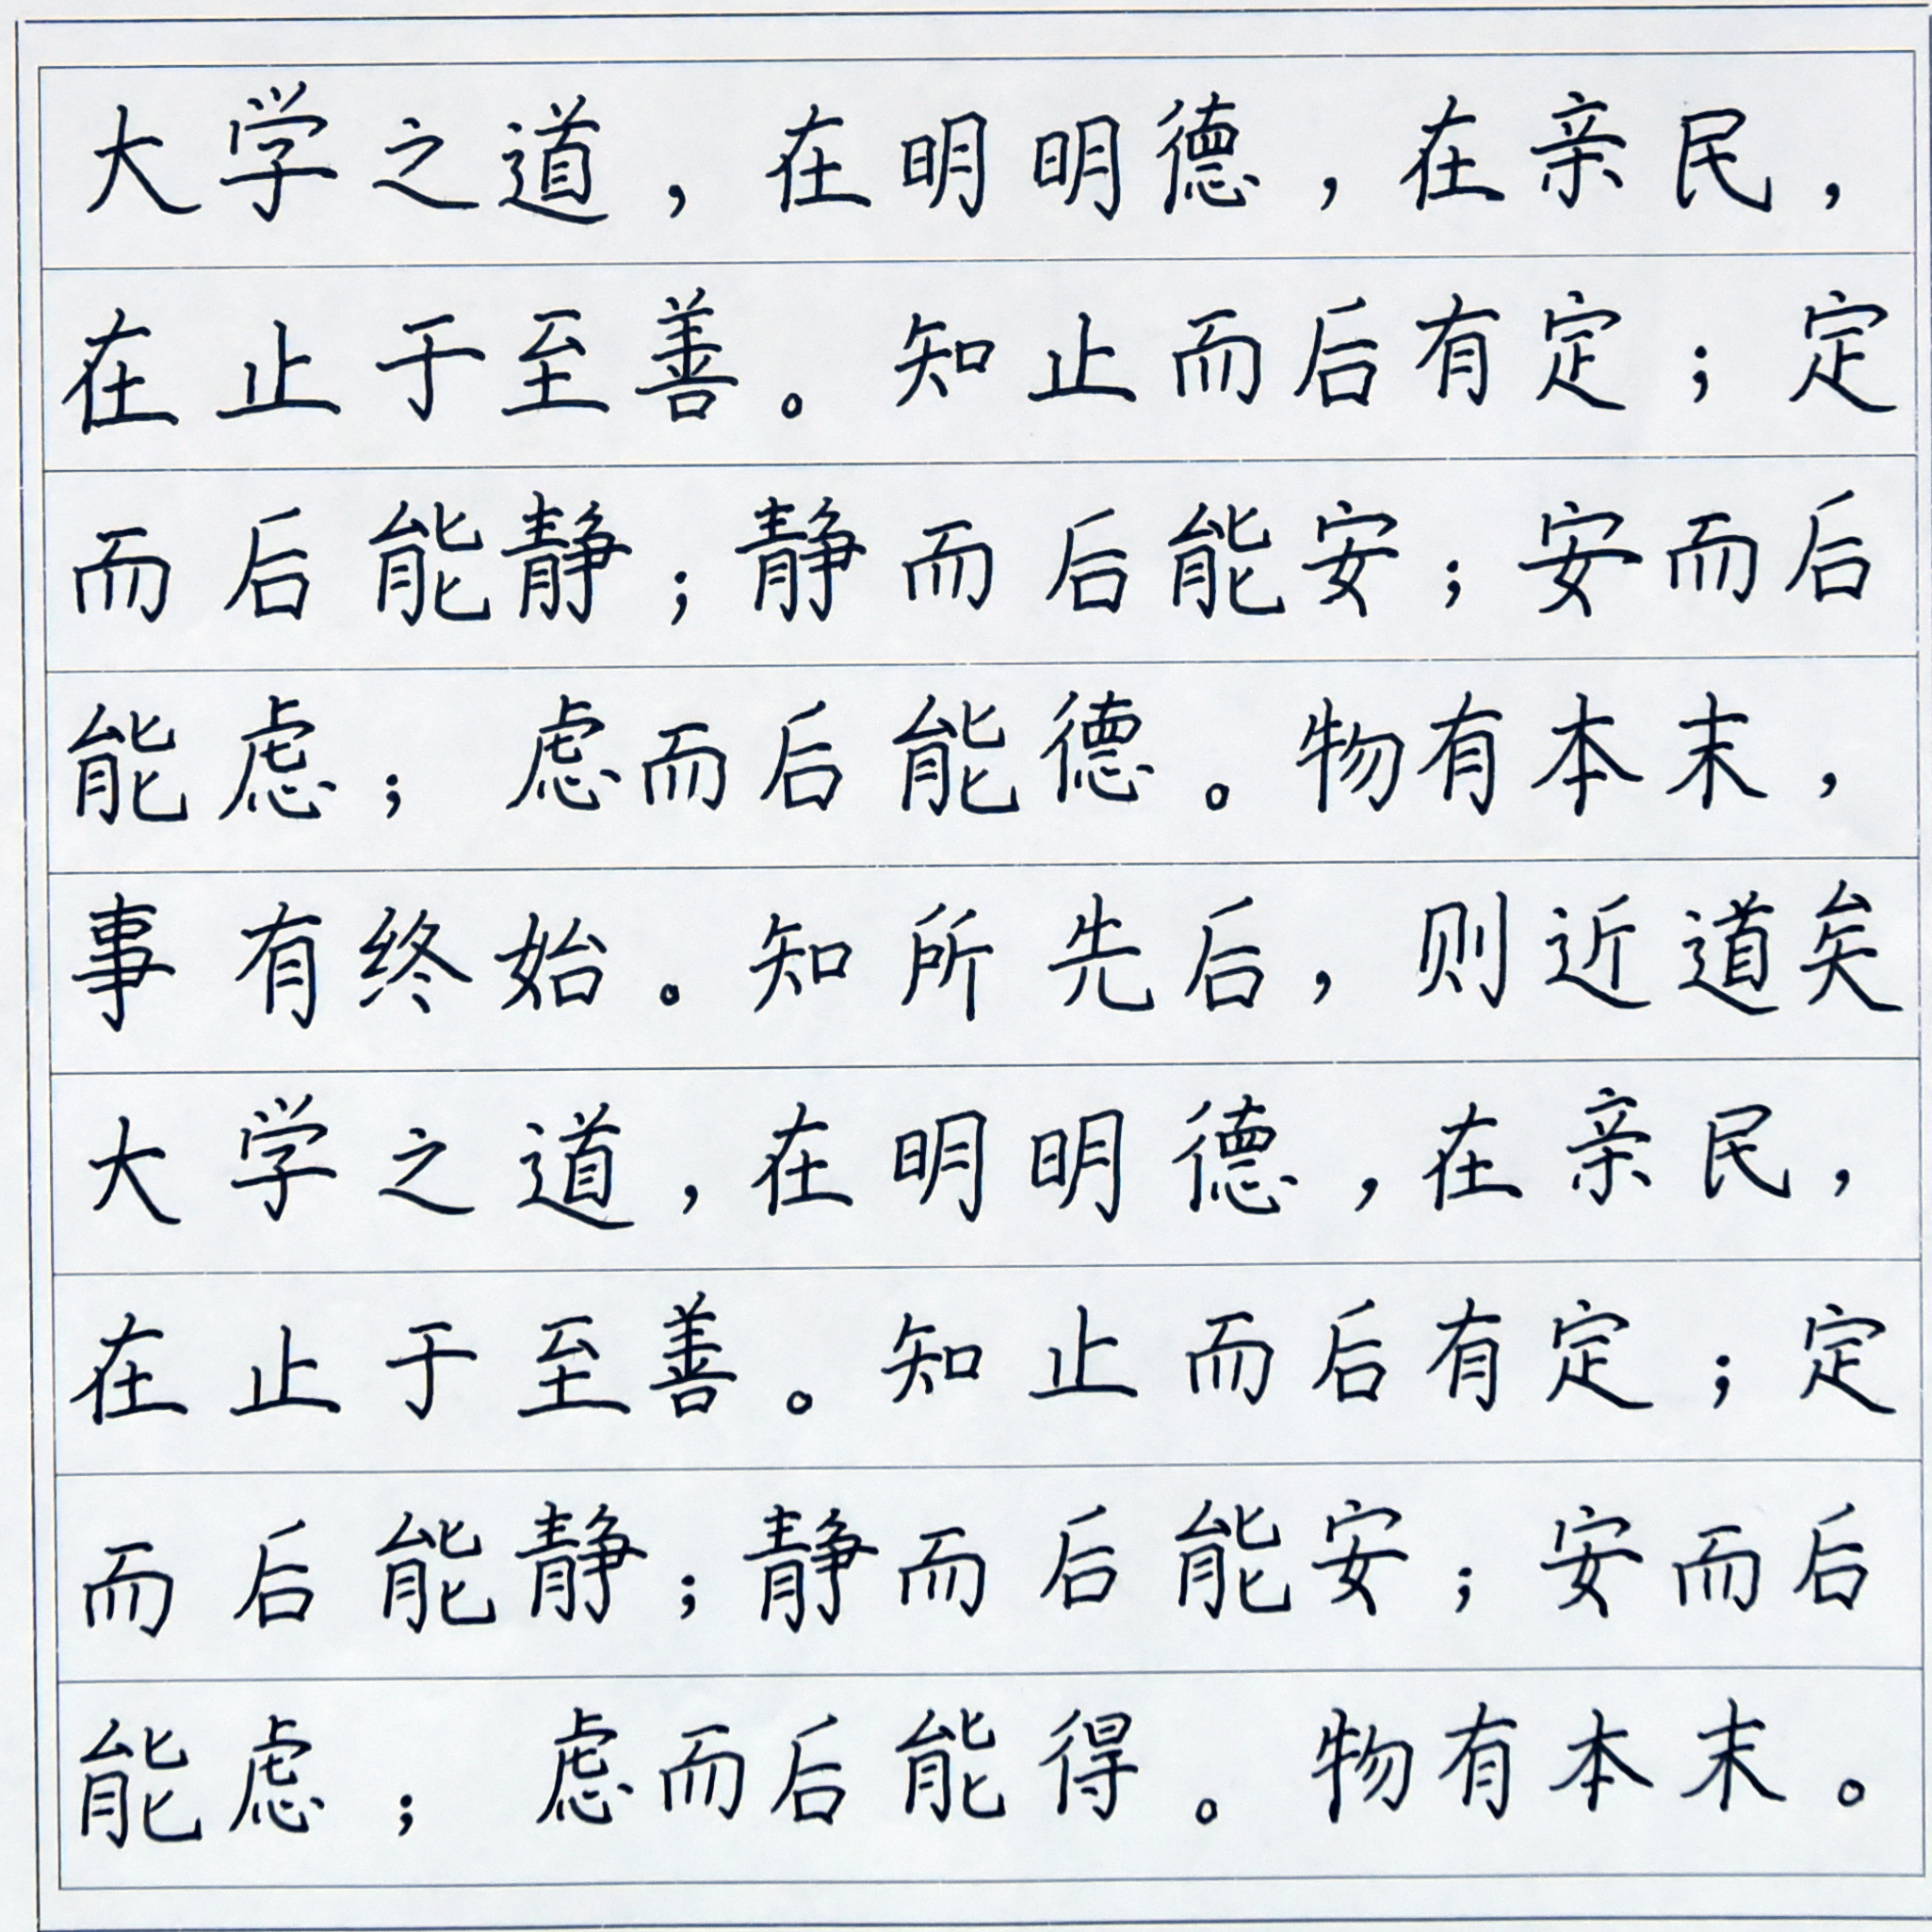 大学之道，在明明德，在亲民，
在止于至善。知止而后有定；定
而后能静；静而后能安；安而后
能虑；虑而后能德。物有本末，
事有终始。知所先后，则近道矣
大学之道，在明明德，在亲民，
在止于至善。知止而后有定；定
而后能静；静而后能安；安而后
能虑；虑而后能得。物有本末。